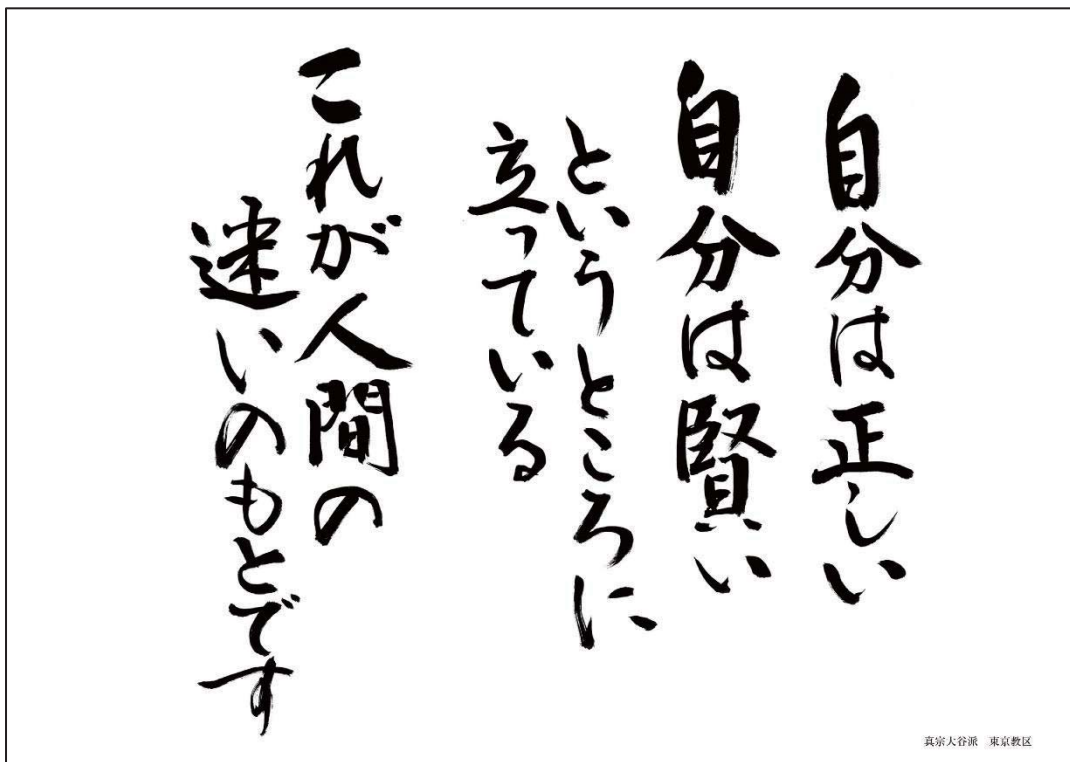 自分は正しい
自分は賢い
というところに
立っている
これが人間の
迷いのもとです
真宗大谷派　東京教区